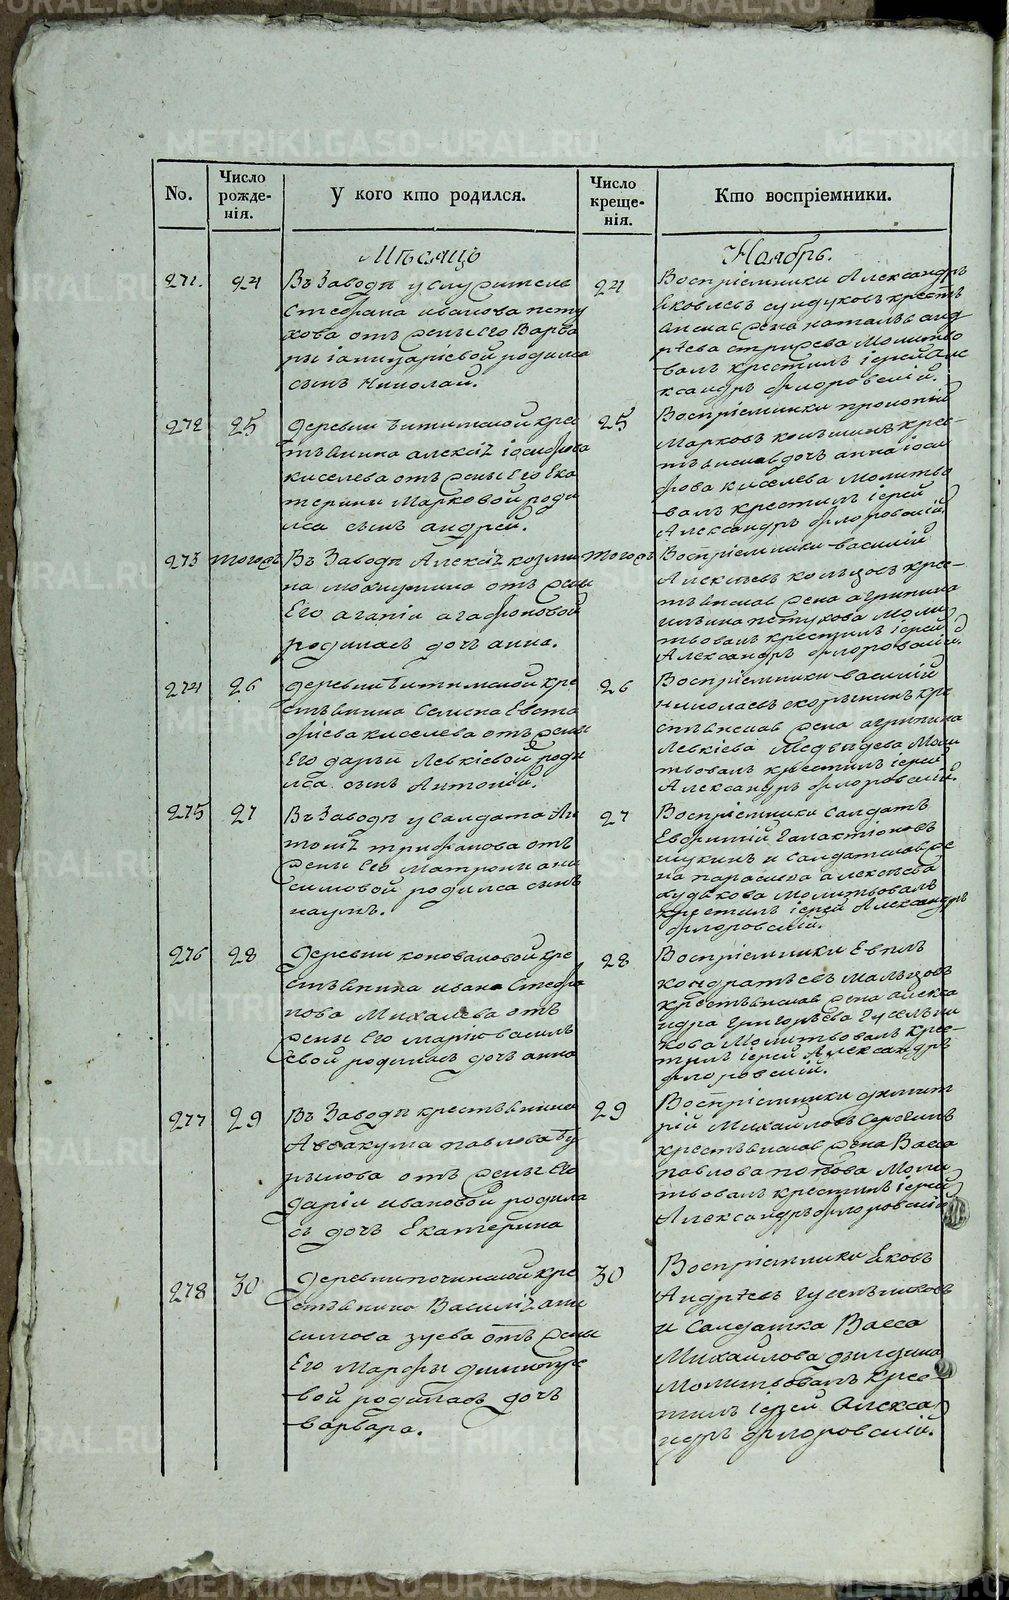 No.
Число рожденія.
У кого кто родился.
Число крещенія.
Кто воспріемники.
Мѣсяцъ
Ноябрь.
271.
24
Въ Заводѣ у служителя
Стефана иванова пету
хова отъ жены его Варва
ры родился
сынъ Николай.
24
Воспріемники Александръ
Яковлевъ сундуковъ крестъ
янская жена наталья анд
рѣева Молитво
валъ крестилъ іерей Але
ксандръ Флоровскій.
272
25
Деревни Битимской кре
стьянина алексія іосифова
киселева отъ жены Его Ека
терины Марковой роди
лся сынъ андрей.
25
Воспріемники прокопій
Марковъ крес-
тьянская дочь анна іоси
фова киселева Молитво
валъ крестилъ іерей
Александръ Флоровскій.
273
тогожъ
Въ Заводѣ Алексія козми
на отъ жены
Его агапіи агафоновой
родилась дочь анна.
тогожъ
Воспріемники василій
Алексѣевъ кольцовъ крес-
тьянская жена агрипина
ильина петухова Моли
твовалъ крестилъ іерей
Александръ Флоровскій.
274
26
Деревни Битимской кре
стьянина Семена Евста
фіева киселева отъ жены
Его дарьи Левкіевой роди
лся сынъ Антоній.
26
Воспріемники василій
николаевъ скорынинъ кре
стьянская жена агрипина
Левкіева Медведева Моли
твовалъ крестилъ іерей
Александръ Флоровскій.
275
27
Въ Заводѣ у Солдата Ан
тонія трифанова отъ
жены Его Матроны ани
симовой родился сынъ
наумъ.
27
Воспріемники Солдатъ
Евфимій Галактіоновъ
щукинъ и Солдатская же
на параскева алексѣева
кудякова Молитвовалъ
крестилъ іерей Александръ
Флоровскій.
276
28
Деревни коноваловой кре
стьянина ивана Стефа
нова Михалева отъ
жены Его Маріи василь
евой родилась дочь анна
28
Воспріемники
кондратьевъ мальцовъ
крестьянская жена алекса
ндра Григорьева Гусельни
кова Молитвовалъ крес-
тилъ іерей Александръ
Флоровскій.
277
29
Въ Заводѣ крестьянина
Аввакума павлова Бу
рылова отъ жены Его
Даріи ивановой родила
сь дочь Екатерина
29
Воспріемники димит
рій Михайловъ
крестьянская жена Васса
павлова попова Моли
твовалъ крестилъ іерей
Александръ Флоровскій
278
30
Деревни починской кре
стьянина Василія ани
симова зуева отъ жены
Его Марфы димитріе
вой родилась дочь
варвара.
30
Воспріемники Яковъ
Андрѣевъ Гусельниковъ
и Солдатка Васса
Михайлова дылдина
Молитвовалъ Крес-
тилъ іерей Алекса
ндръ Флоровскій.
METRIKI.GASO-URAL.RU